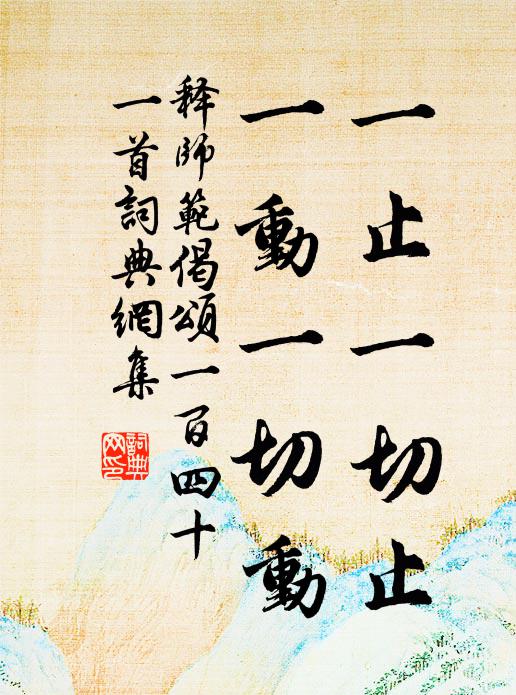 一止一切止
一動一切動
释師範偈頌一百四十
一首詞典網集
詞典
网印